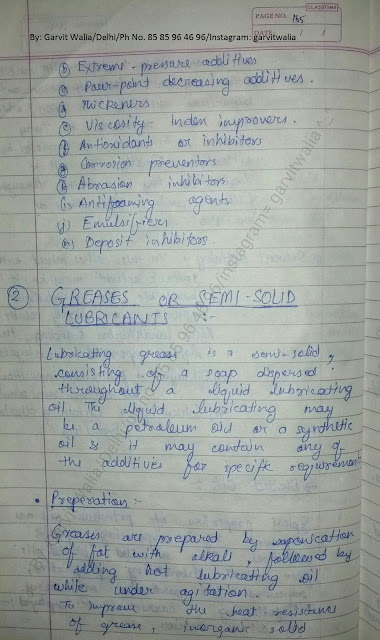 CLASSTIME
PAGE NO. 165
DATE: / /
By: Garvit Walia/Delhi/Ph No. 85 85 96 46 96/Instagram: garvitwalia
(b) Extreme-pressure additives
(c) Pour-point decreasing additives.
(d) Thickeners
(e) Viscosity Index improvers.
(f) Antioxidants or inhibitors
(g) Corrosion preventors
(h) Abrasion inhibitors
(i) Antifoaming agents
(j) Emulsifiers
Deposit inhibitors.
(2) GREASES OR SEMI-SOLID
LUBRICANTS :-
Lubricating grease is a semi-solid,
consisting of a soap dispersed
throughout a liquid lubricating
oil. The liquid lubricating may
be a petroleum oil or a synthetic
oil & it may contain any of
the additives for specific requirement
• Preperation :-
Greases are prepared by saponication
of fat with alkali, followed by
adding hot lubricating oil
while under agitation.
To improve the heat resistance
of grease, inorganic solid